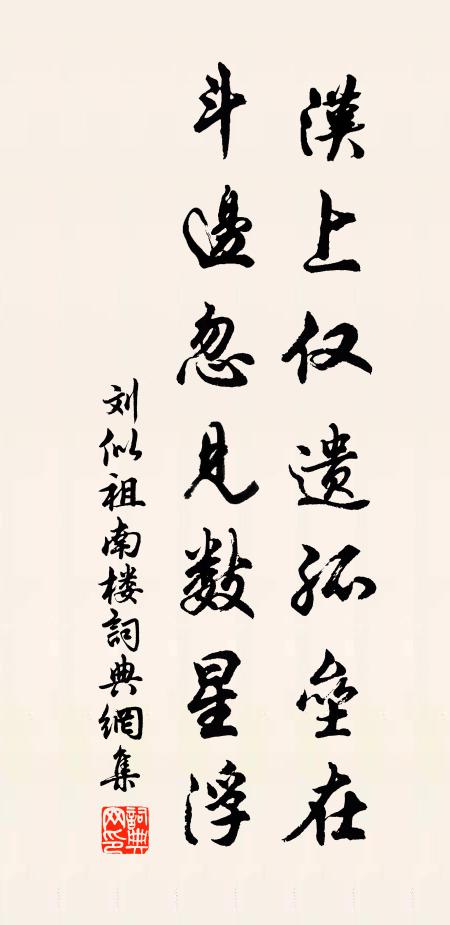 漢上仅遗孤垒在
斗邊忽見数星浮
刘似祖南楼詞典網集
詞典网印